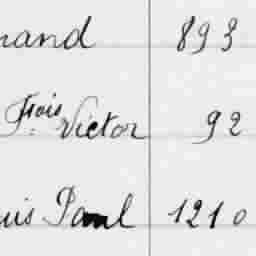 nand 893
Frois Victor 92
uis Paul 1210